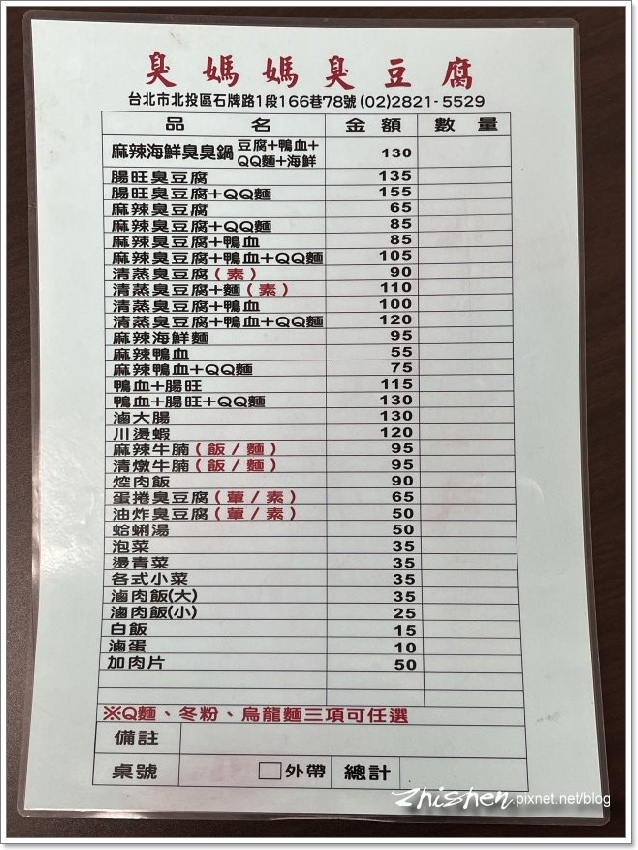 臭媽媽臭豆腐
台北市北投區石牌路1段166巷78號(02)2821-5529
品名 金額 數量
麻辣海鮮臭臭鍋 豆腐+鴨血+QQ麵+海鮮 130
腸旺臭豆腐 135
腸旺臭豆腐+QQ麵 155
麻辣臭豆腐 65
麻辣臭豆腐+QQ麵 85
麻辣臭豆腐+鴨血 85
麻辣臭豆腐+鴨血+QQ麵 105
清蒸臭豆腐(素) 90
清蒸臭豆腐+麵(素) 110
清蒸臭豆腐+鴨血 100
清蒸臭豆腐+鴨血+QQ麵 120
麻辣海鮮麵 95
麻辣鴨血 55
麻辣鴨血+QQ麵 75
鴨血+腸旺 115
鴨血+腸旺+QQ麵 130
滷大腸 130
川燙蝦 120
麻辣牛腩(飯/麵) 95
清燉牛腩(飯/麵) 95
焢肉飯 90
蛋捲臭豆腐(葷/素) 65
油炸臭豆腐(葷/素) 50
蛤蜊湯 50
泡菜 35
燙青菜 35
各式小菜 35
滷肉飯(大) 35
滷肉飯(小) 25
白飯 15
滷蛋 10
加肉片 50
※Q麵、冬粉、烏龍麵三項可任選
備註
桌號 □外帶 總計
zhishen.pixnet.net/blog